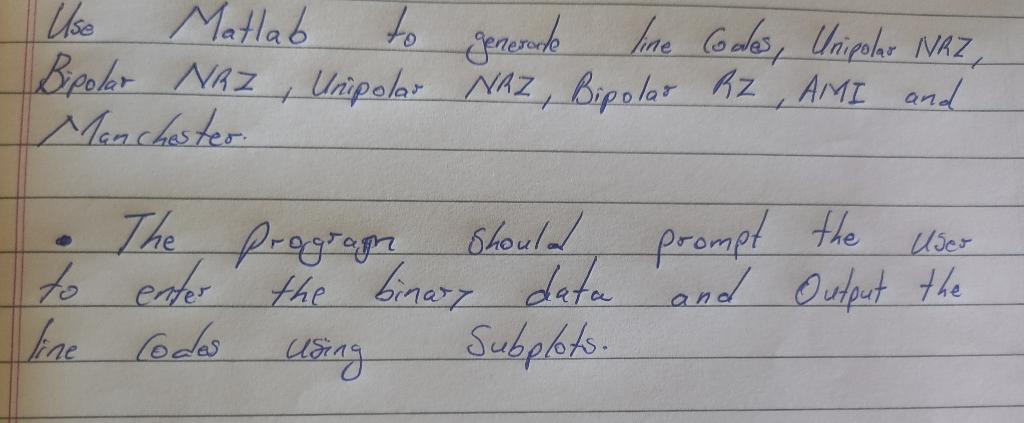 Use Matlab to generate line Codes, Unipolar NRZ,
Bipolar NRZ, Unipolar NRZ, Bipolar RZ, AMI and
Manchester.
• The program should prompt the user
to enter the binary data and Output the
line Codes using Subplots.